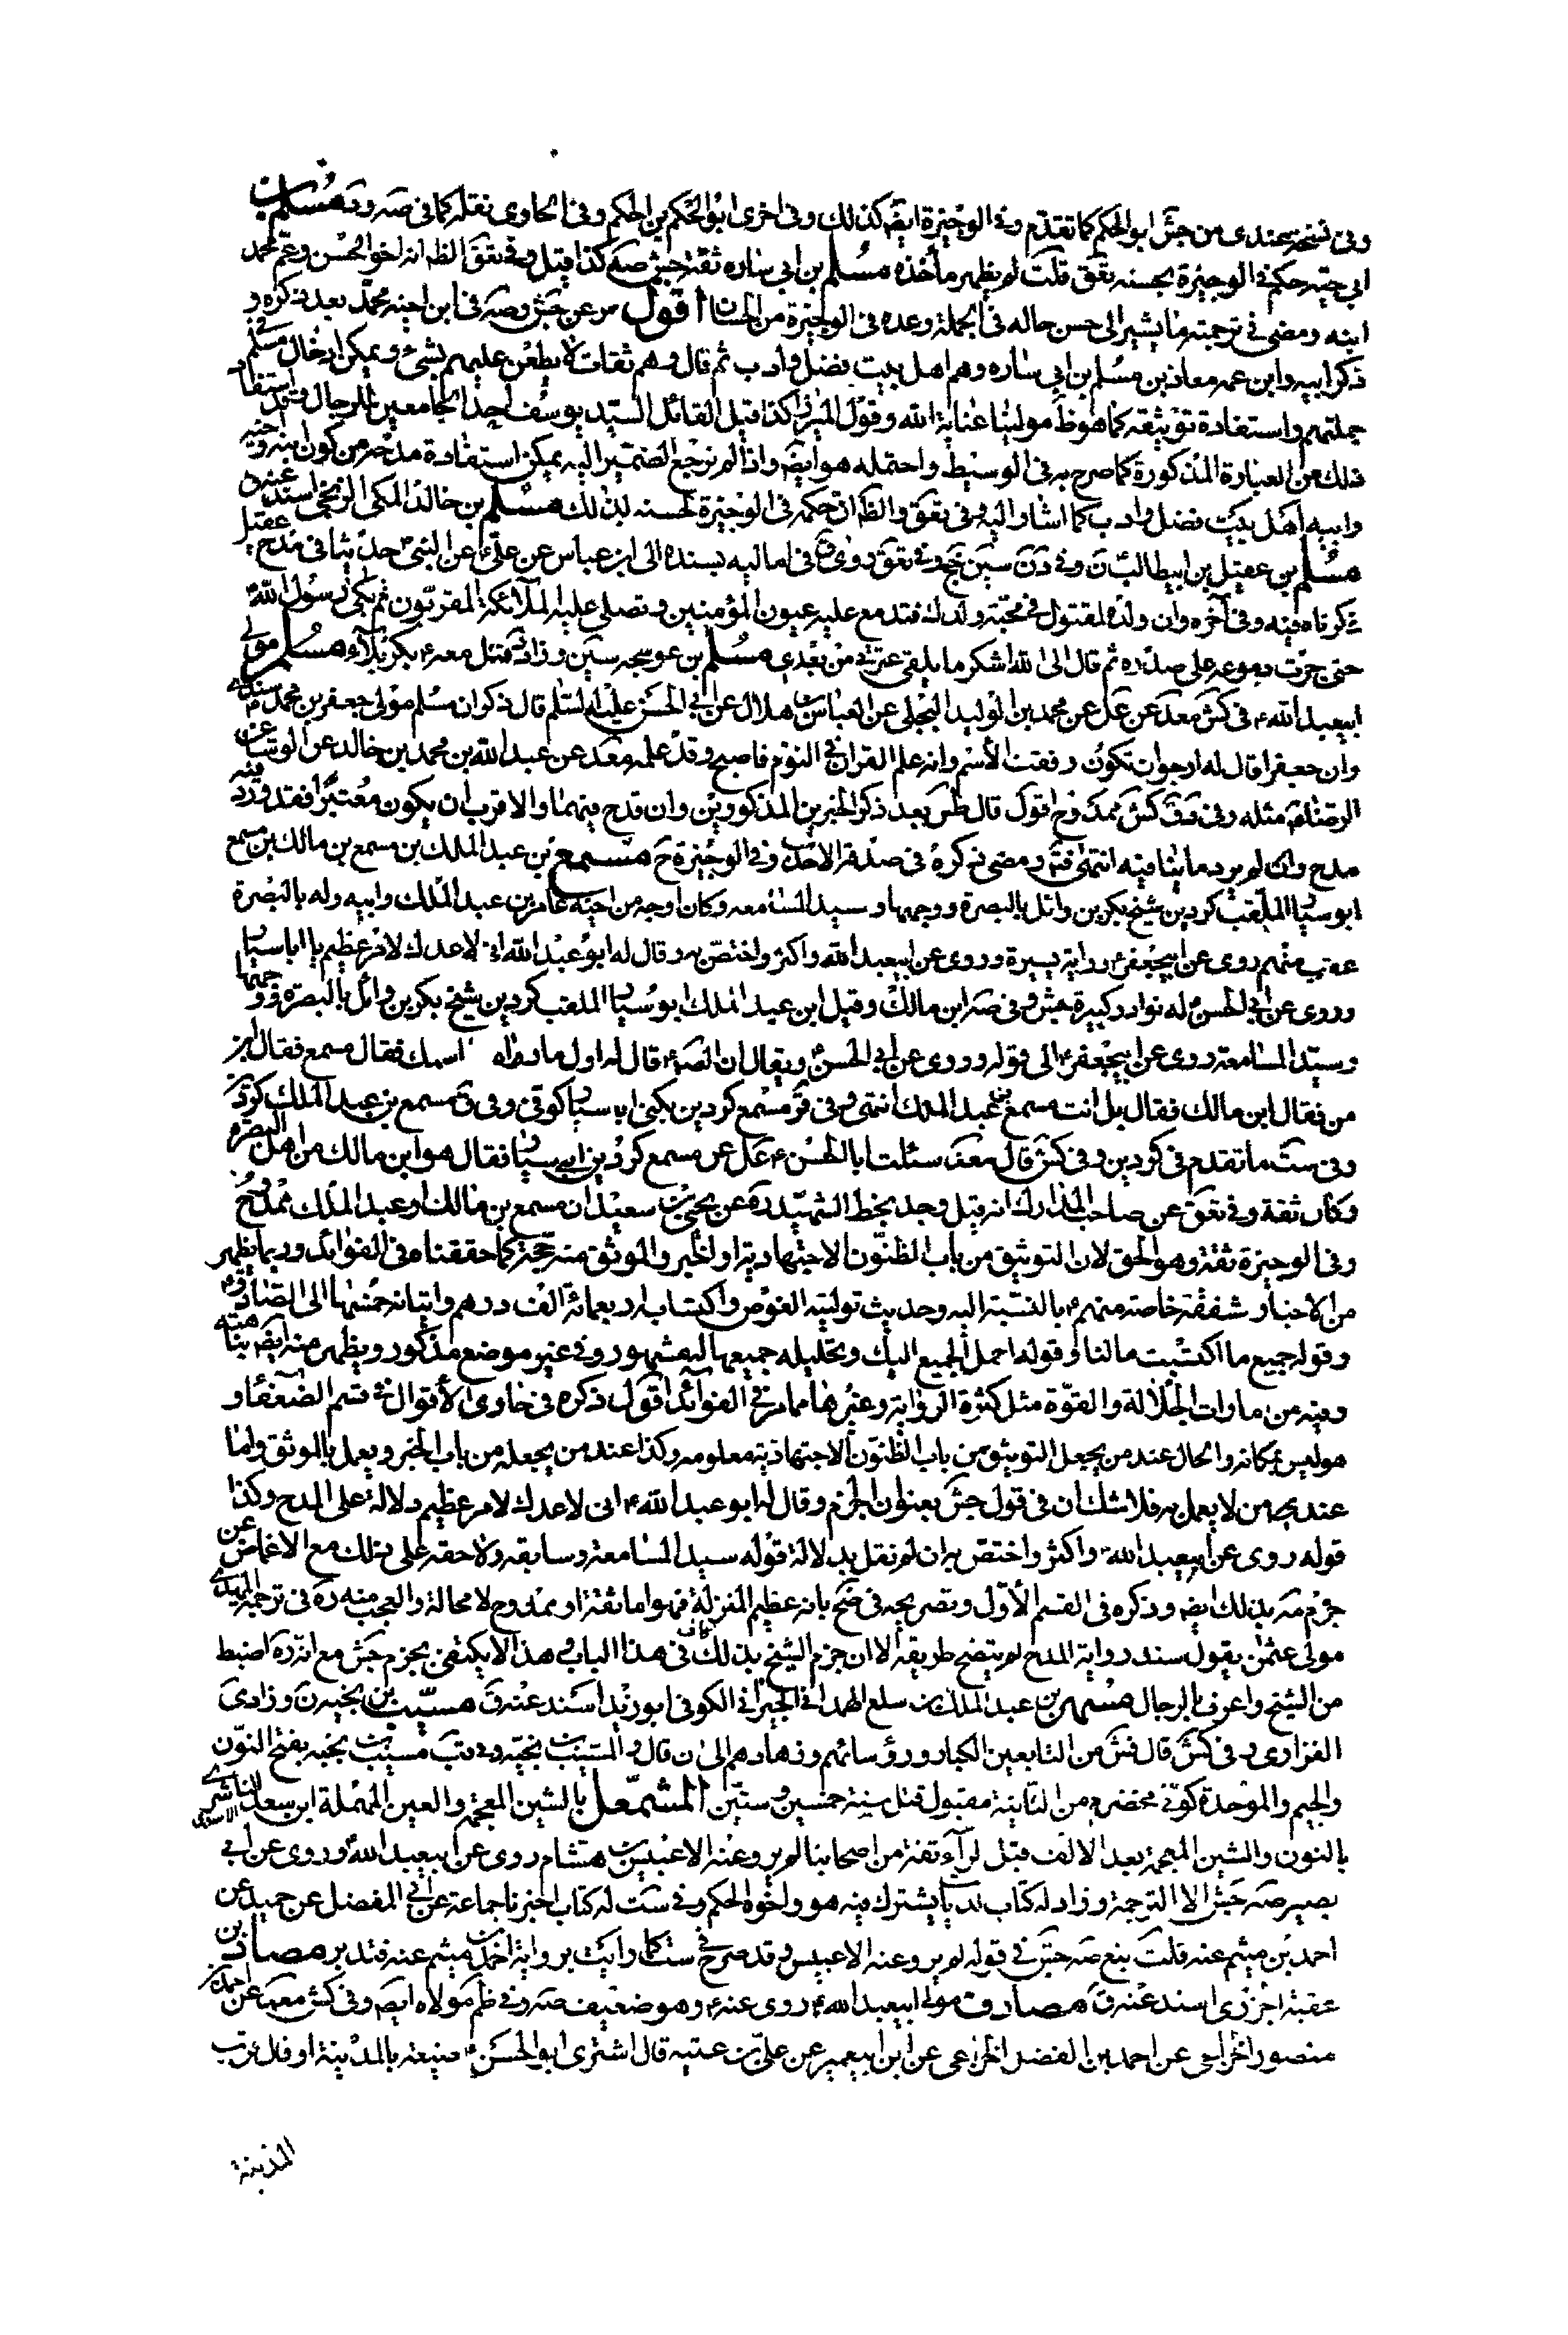 وفى نسخة عندى من جش ابو الحكم كما تقدم وفى الوجيزة ايضا كذلك وفى اخرى ابو الحكم بن الحكم وفى الحاوى نقله كما فى صه ود مسلم بن
ابى حيه حكم فى الوجيزة بحسنه تعق قلت لم يظهر مأخذه مسلم بن ابى ساره ثقة جش صه كذا قيل وفى تعق الظ انه اخو الحسن وعم محمد
ابنه ومضى فى ترجمته ما يشير الى حسن حاله فى الجملة وعده فى الوجيزة من الحسان اقول مر عن جش وصه فى ابن اخيه محمد بعد ذكره و
ذكر ابيه وابن عمه معاذ بن مسلم بن ابى ساره وهم اهل بيت فضل وادب ثم قال وهم ثقات لا يطعن عليهم بشئ ويمكن ادخال مسلم فى
جملتهم واستفادة توثيقه كما هو ظ مولينا عناية الله وقول الميرزا كذا قيل القائل السيد يوسف احد الجامعين للرجال وقد استفاد
ذلك من العبارة المذكورة كما صرح به فى الوسيط واحتمله هو ايضا واذا لم نرجع الضمير اليه يمكن استفادة مدحه من كون ابنه واخيه
وابيه اهل بيت فضل وادب كما اشار اليه فى تعق والظ ان حكمه فى الوجيزة بحسنه لذلك مسلم بن خالد المكى الزنجى اسند عنه ق
مسلم بن عقيل بن ابيطالب ن وفى د ن سين جخ وفى تعق روى ق فى اماليه بسنده الى ابن عباس عن على ع عن النبى ص حديثا فى مدح عقيل
ذكرناه فيه وفى آخره وان ولده لمقتول فى محبة ولدك فتدمع عليه عيون المؤمنين وتصلى عليه الملائكة المقربون ثم بكى رسول الله ص
حتى جرت دموعه على صدره ثم قال الى الله اشكو ما يلقى عترتى من بعدى مسلم بن عوسجه سين وزاد د قتل معه ع بكربلاء مسلم مولى
ابيعبد الله ع فى كش معد عن عل عن محمد بن الوليد البجلى عن العباس بن هلال عن ابى الحسن عليه السلام قال ذكر ان مسلم مولى جعفر بن محمد سندى
وان جعفرا قال له ارجو ان تكون وفقت الاسم وانه علم القران فى النوم فاصبح وقد علمه معد عن عبد الله بن محمد بن خالد عن الوشا عن
الرضا ع مثله وفى ق كش ممدوح اقول قال طس بعد ذكر الخبرين المذكورين وان قدح فيهما والاقرب ان يكون معتبرا فقد ورد فيه
مدح وان لم يرد ما ينافيه انتهى ومضى ذكره فى صدقة الاحدب وفى الوجيزة ح مسمع بن عبد الملك بن مسمع بن مالك بن مسمع
ابو سيار الملقب كردين شيخ بكر بن وائل بالبصرة ووجهها وسيد المسامعه وكان اوجه من اخيه عامر بن عبد الملك وابيه وله بالبصرة
عقب منهم روى عن ابيجعفر ع رواية يسيرة وروى عن ابيعبد الله واكثر واختص به وقال له ابو عبد الله انى لاعدك لامر عظيم يا ابا سيار
وروى عن ابى الحسن ع له نوادر كبيرة جش وفى صه ابن مالك وقيل ابن عبد الملك ابو سيار الملقب كردين شيخ بكر بن وائل بالبصره ووجهها
وسيد المسامعه روى عن ابيجعفر ع الى قوله وروى عن ابى الحسن ع ويقال ان الصه ع قال له اول ما راه ما اسمك فقال مسمع فقال ابن
من فقال ابن مالك فقال بل انت مسمع بن عبد الملك انتهى وفى قر مسمع كردين يكنى ابا سيار كوفى وفى ق مسمع بن عبد الملك كردين
وفى ست ما تقدم فى كردين وفى كش قال معد سئلت ابا الحسن ع عل عن مسمع كردين ابى سيار فقال هو ابن مالك من اهل البصره
وكان ثقة وفى تعق عن صاحب المدارك انه قيل وجد بخط الشهيد ره عن يحيى بن سعيد ان مسمع بن مالك او عبد الملك ممدوح
وفى الوجيزة ثقة وهو الحق لان التوثيق من باب الظنون الاجتهادية او الخبر والموثق منه حجة كما حققناه فى الفوائد وربما يظهر
من الاخبار شفقة خاصة منهم ع بالنسبة اليه وحديث توليته الغوص واكتسابه اربعمائة الف درهم واتيانه خمسها الى الصادق ع
وقوله جميع ما اكتسبت مالنا وقوله احمل الجميع اليك وتحليله جميعها له مشهور وفى غير موضع مذكور ويظهر منه ايضا نباهته
وفيه من امارات الجلالة والقوة مثل كثرة الرواية وغيرها مما مر فى الفوائد اقول ذكره فى حاوى الاقوال فى قسم الضعفاء و
هو ليس بمكانه والحال عند من يجعل التوثيق من باب الظنون الاجتهادية معلومه وكذا عند من يجعله من باب الخبر ويعمل بالموثق واما
عند من لا يعمل به فلا شك ان فى قول جش بعنوان الجزم وقال له ابو عبد الله ع انى لاعدك لامر عظيم دلالة على المدح وكذا
قوله روى عن ابيعبد الله ع واكثر واختص به ان لم نقل بدلالة قوله سيد المسامعة وسابقه ولاحقه على ذلك مع الاغماض عن
جزم مه بذلك ايضا وذكره فى القسم الأول وتصريحه فى ضح بانه عظيم المنزلة فهو اما ثقة او ممدوح لا محالة والعجب منه ره فى ترجمة
مولى عثمن يقول سند رواية المدح لم يتضح طريقه الا ان جزم الشيخ بذلك كاف فى هذا الباب وهذا لا يكتفى بجزم جش مع انه ره اضبط
من الشيخ واعرف بالرجال مسهر بن عبد الملك بن سلع الهمدانى الكوفى ابو زيد اسند عنه ق مسيب بن نجبه ن وزاد ى
الفزارى وفى كش قال فش من التابعين الكبار ورؤسائهم وزهادهم الى ان قال و المسيب بن نجبه وفى قب مسيب بن نجبه بفتح النون
والجيم والموحدة كوفى مخضرم من الثانية مقبول قتل سنة خمسين وستين المشمعل بالشين المعجمه والعين المهملة ابن سعد الناشرى الاسدى
بالنون والشين المعجمة بعد الالف قبل الراء ثقة من اصحابنا لم يرو عنه الا عبيس بن هشام روى عن ابيعبد الله ع وروى عن ابى
بصير صه جش الا الترجمة وزاد له كتاب يشترك فيه هو واخوه الحكم وفى ست له كتاب اخبرنا جماعة عن ابى المفضل عن حميد عن
احمد بن ميثم عنه قلت تبع صه جش فى قوله لم يرو عنه الا عبيس وقد صرح فى ست كما رايت برواية احمد بن ميثم عنه فتدبر مصادف بن
عقبة الجزرى اسند عنه ق مصادف مولى ابيعبد الله ع روى عنه ع وهو ضعيف صه وفى ظم مولاه ايضا وفى كش معد عن احمد بن
منصور الخزاعى عن احمد بن الفضل الخزاعى عن ابن ابيعمير عن على بن عطيه قال اشترى ابو الحسن ع ضيعة بالمدينة او قال قرب
المدينة